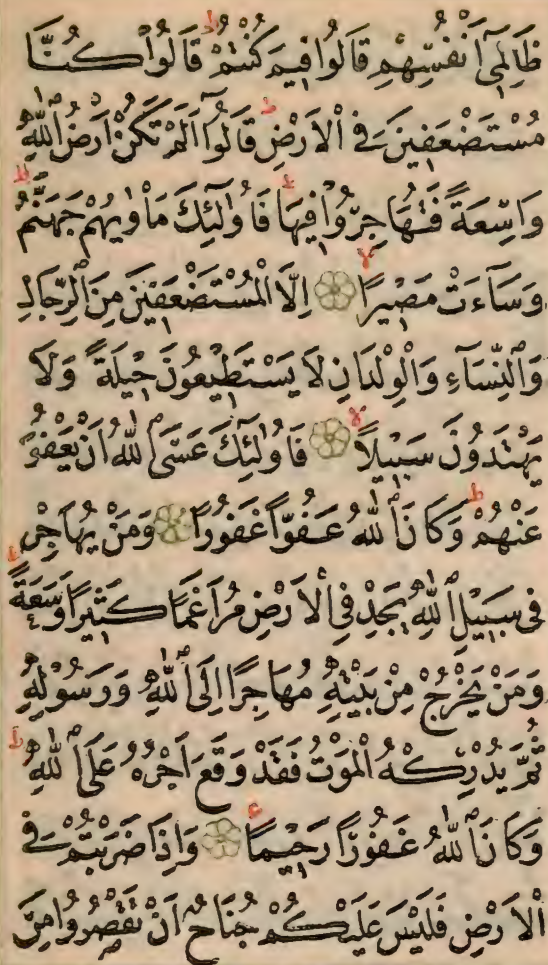 ظَالِمِىٓ اَنْفُسِهِمْ قَالُوا فِيمَ كُنْتُمْ قَالُوا كُنَّا
مُسْتَضْعَفِينَ فِى الْاَرْضِ قَالُٓوا اَلَمْ تَكُنْ اَرْضُ اللّٰهِ
وَاسِعَةً فَتُهَاجِرُوا فِيهَا فَاُولٰٓئِكَ مَاْوٰيهُمْ جَهَنَّمُ
وَسَٓاءَتْ مَصِيرًا اِلَّا الْمُسْتَضْعَفِينَ مِنَ الرِّجَالِ
وَالنِّسَٓاءِ وَالْوِلْدَانِ لَا يَسْتَطِيعُونَ حِيلَةً وَلَا
يَهْتَدُونَ سَبِيلًا فَاُولٰٓئِكَ عَسَى اللّٰهُ اَنْ يَعْفُوَ
عَنْهُمْ وَكَانَ اللّٰهُ عَفُوًّا غَفُورًا وَمَنْ يُهَاجِرْ
فِى سَبِيلِ اللّٰهِ يَجِدْ فِى الْاَرْضِ مُرَاغَمًا كَثِيرًا وَسَعَةً
وَمَنْ يَخْرُجْ مِنْ بَيْتِهِ مُهَاجِرًا اِلَى اللّٰهِ وَرَسُولِهِ
ثُمَّ يُدْرِكْهُ الْمَوْتُ فَقَدْ وَقَعَ اَجْرُهُ عَلَى اللّٰهِ
وَكَانَ اللّٰهُ غَفُورًا رَحِيمًا وَاِذَا ضَرَبْتُمْ فِى
الْاَرْضِ فَلَيْسَ عَلَيْكُمْ جُنَاحٌ اَنْ تَقْصُرُوا مِنَ